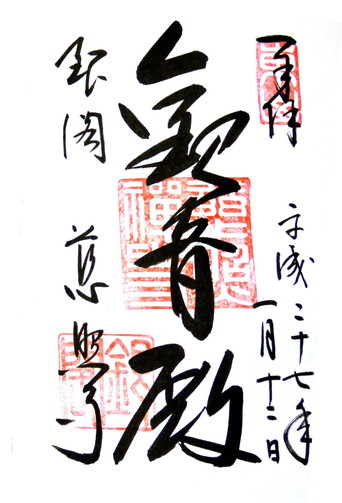 奉拝
平成二十七年
一月十二日
観音殿
銀閣 慈照寺